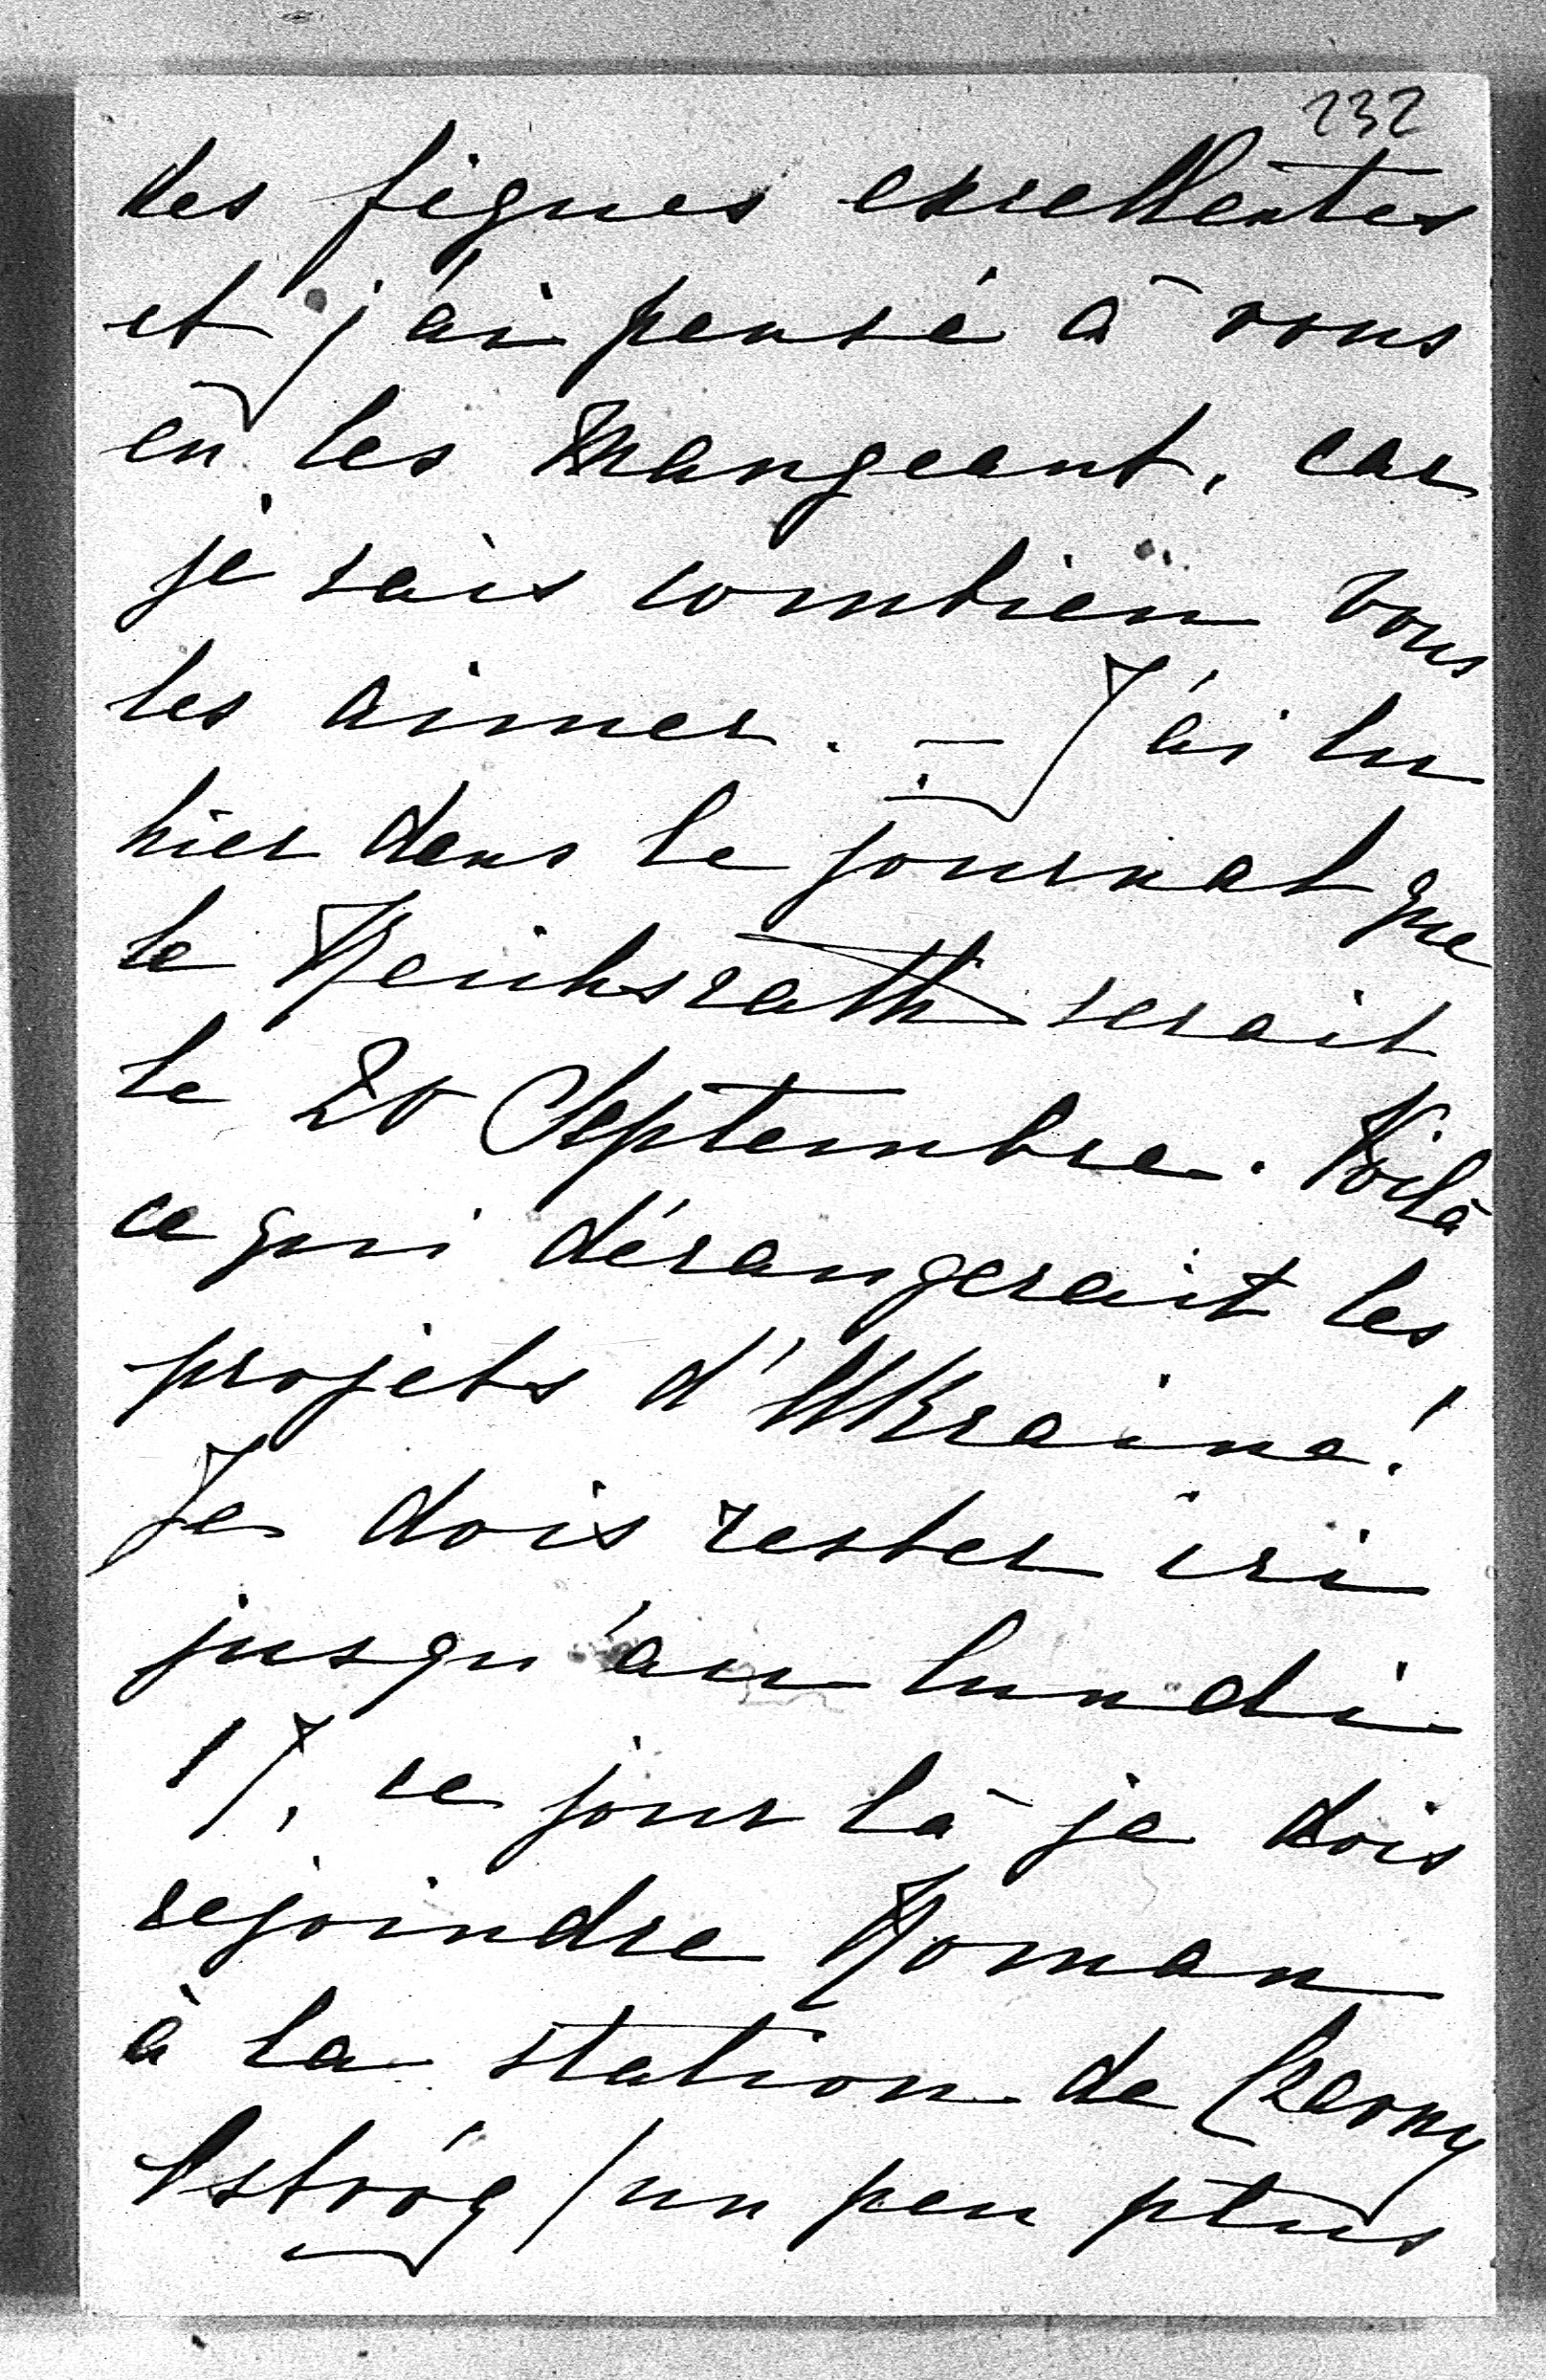 232
des figues excellentes
et j'ai pensé à vous
en les mangeant, car
je sais combien vous
les aimez. — J'ai lu
hier dans le journal que
le Reichsrath serait
le 20 Septembre. Voilà
ce qui dérangerait les
projets d'Ukraine!
Je dois rester ici
jusqu'au lundi
17, ce jour là je dois
rejoindre Roman
à la station de Czerny
Ostróg / un peu plus